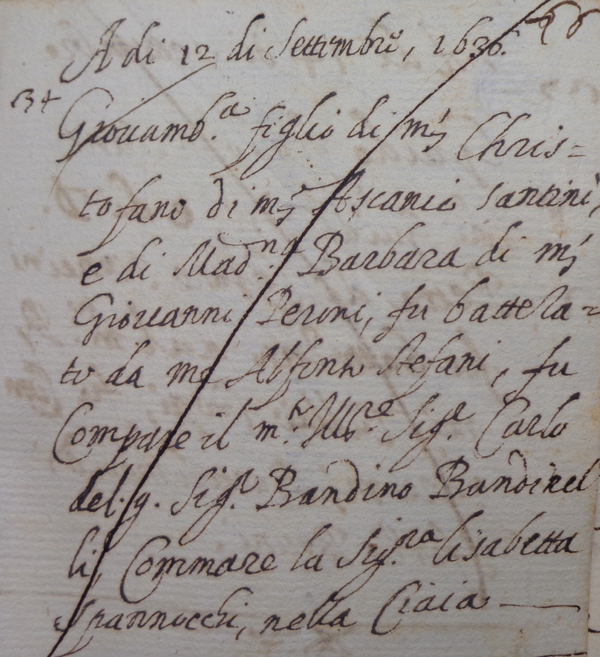 A di 12 di Settimbre, 1636.
34
Giouamb.a figlio di ms Chris=
tofano di ms Ascanio Santini,
e di Mad.na Barbara di ms
Giouanni Peroni, fu batteza=
to da me Alfonso Stefani, fu
Compare il m.to Ill.re Sig.e Carlo
del. q. Sig.e Bandino Bandinel
li, Commare la Sig.na lisabetta
Spannocchi, nella Ciaia